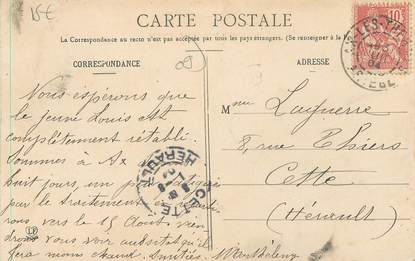 15€
CARTE POSTALE
La Correspondance au recto n'est pas acceptée par tous les pays étrangers. (Se renseigner à la
CORRESPONDANCE
ADRESSE
09
10
AX-LES-
ARIEGE
Nous espérons que
le jeune Louis est
complètement rétabli.
Sommes à Ax
huit jours, un peu
par le traitement et
rons vers le 15 Août, vien
drons vous voir aussitôt qu'il
fera moins chaud. Amitiés.
CETTE
HERAULT
Mme Laguerre
8, rue Thiers
Cette
(Hérault)
LF